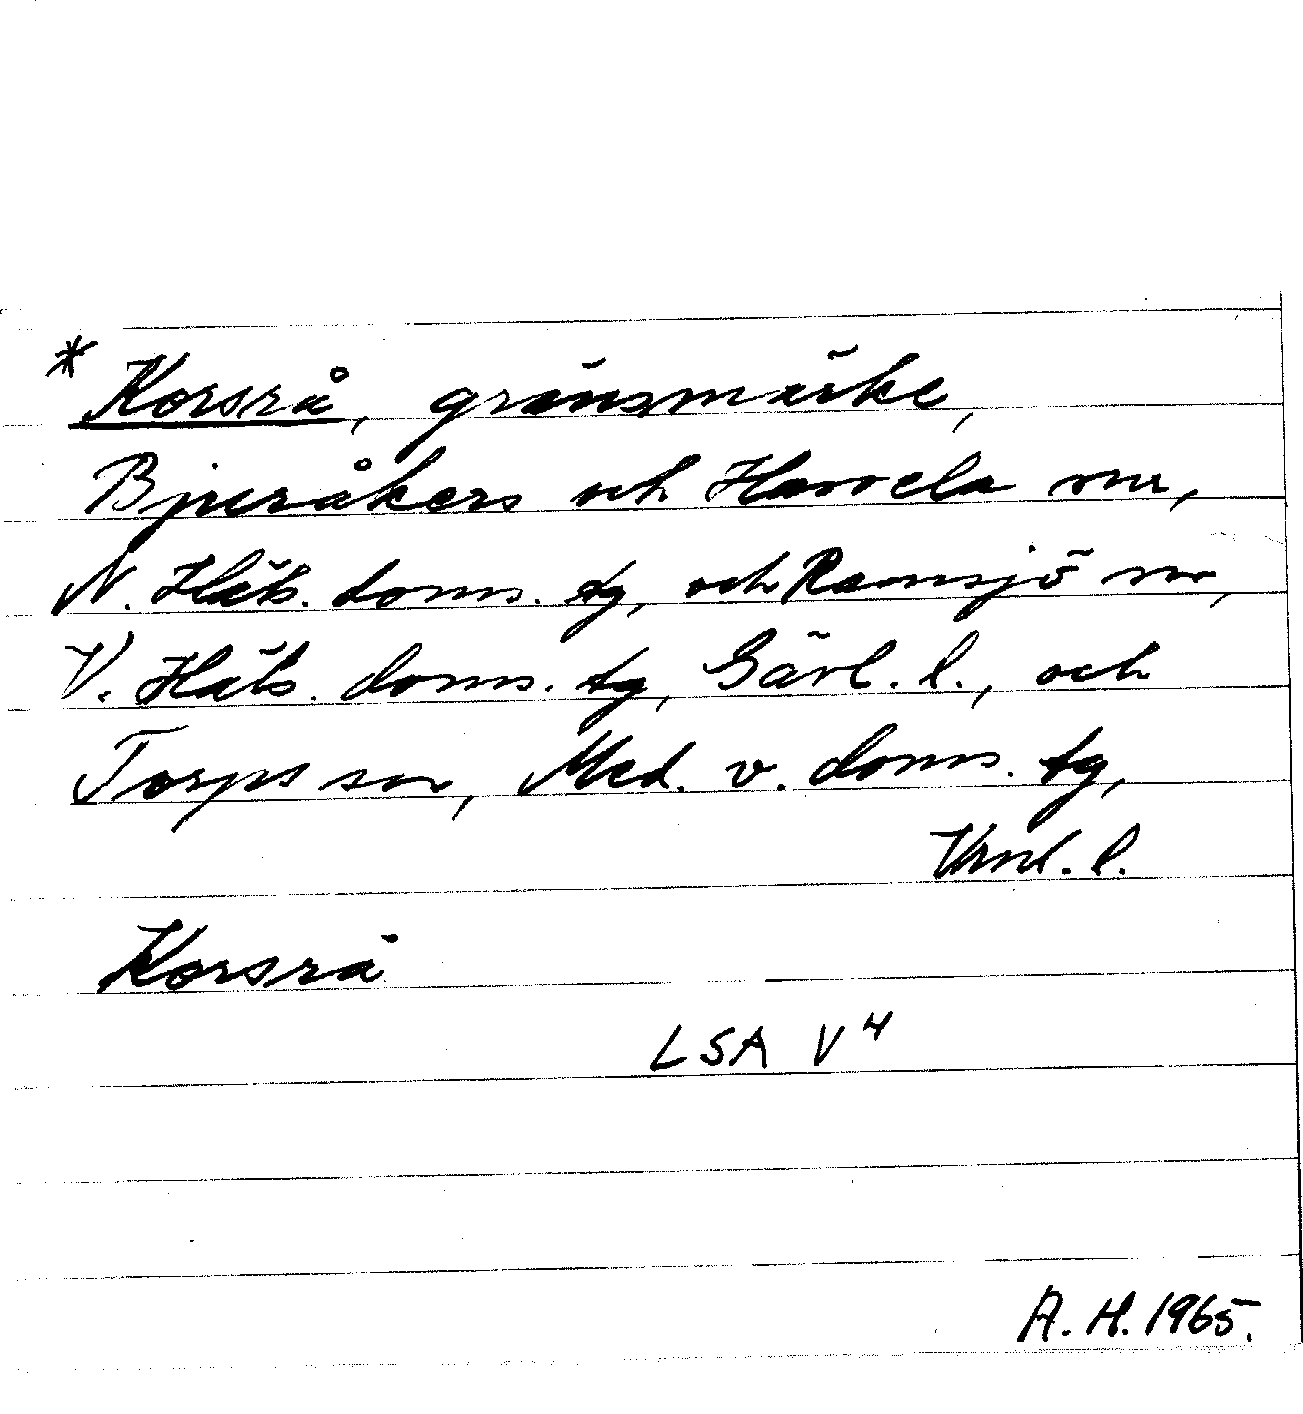 * Korsrå, gränsmärke,
Bjuråkers och Hassela snr,
N. Häls. doms. tg, och Ramsjö sn,
V. Häls. doms. tg, Gävl. l., och
Torps sn, Med. v. doms. tg,
Vnl. l.
Korsrå
LSA V 4
A. H. 1965.